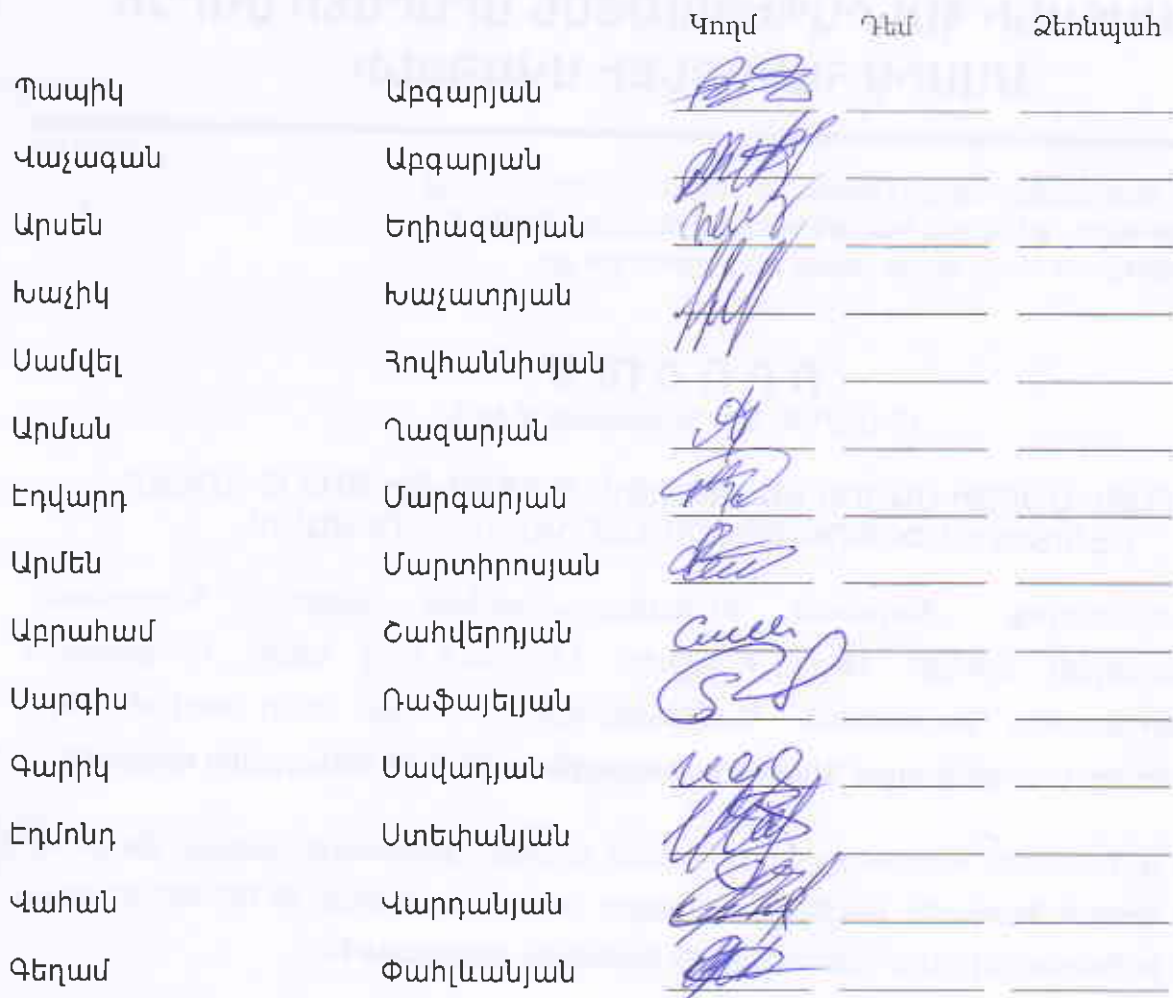 Կողմ Դեմ Ձեռնպահ
Պապիկ Աբգարյան
Վաչագան Աբգարյան
Արսեն Եղիազարյան
Խաչիկ Խաչատրյան
Սամվել Հովհաննիսյան
Արման Ղազարյան
Էդվարդ Մարգարյան
Արմեն Մարտիրոսյան
Աբրահամ Շահվերդյան
Սարգիս Ռաֆայելյան
Գարիկ Սավադյան
Էդմոնդ Ստեփանյան
Վահան Վարդանյան
Գեղամ Փահլևանյան